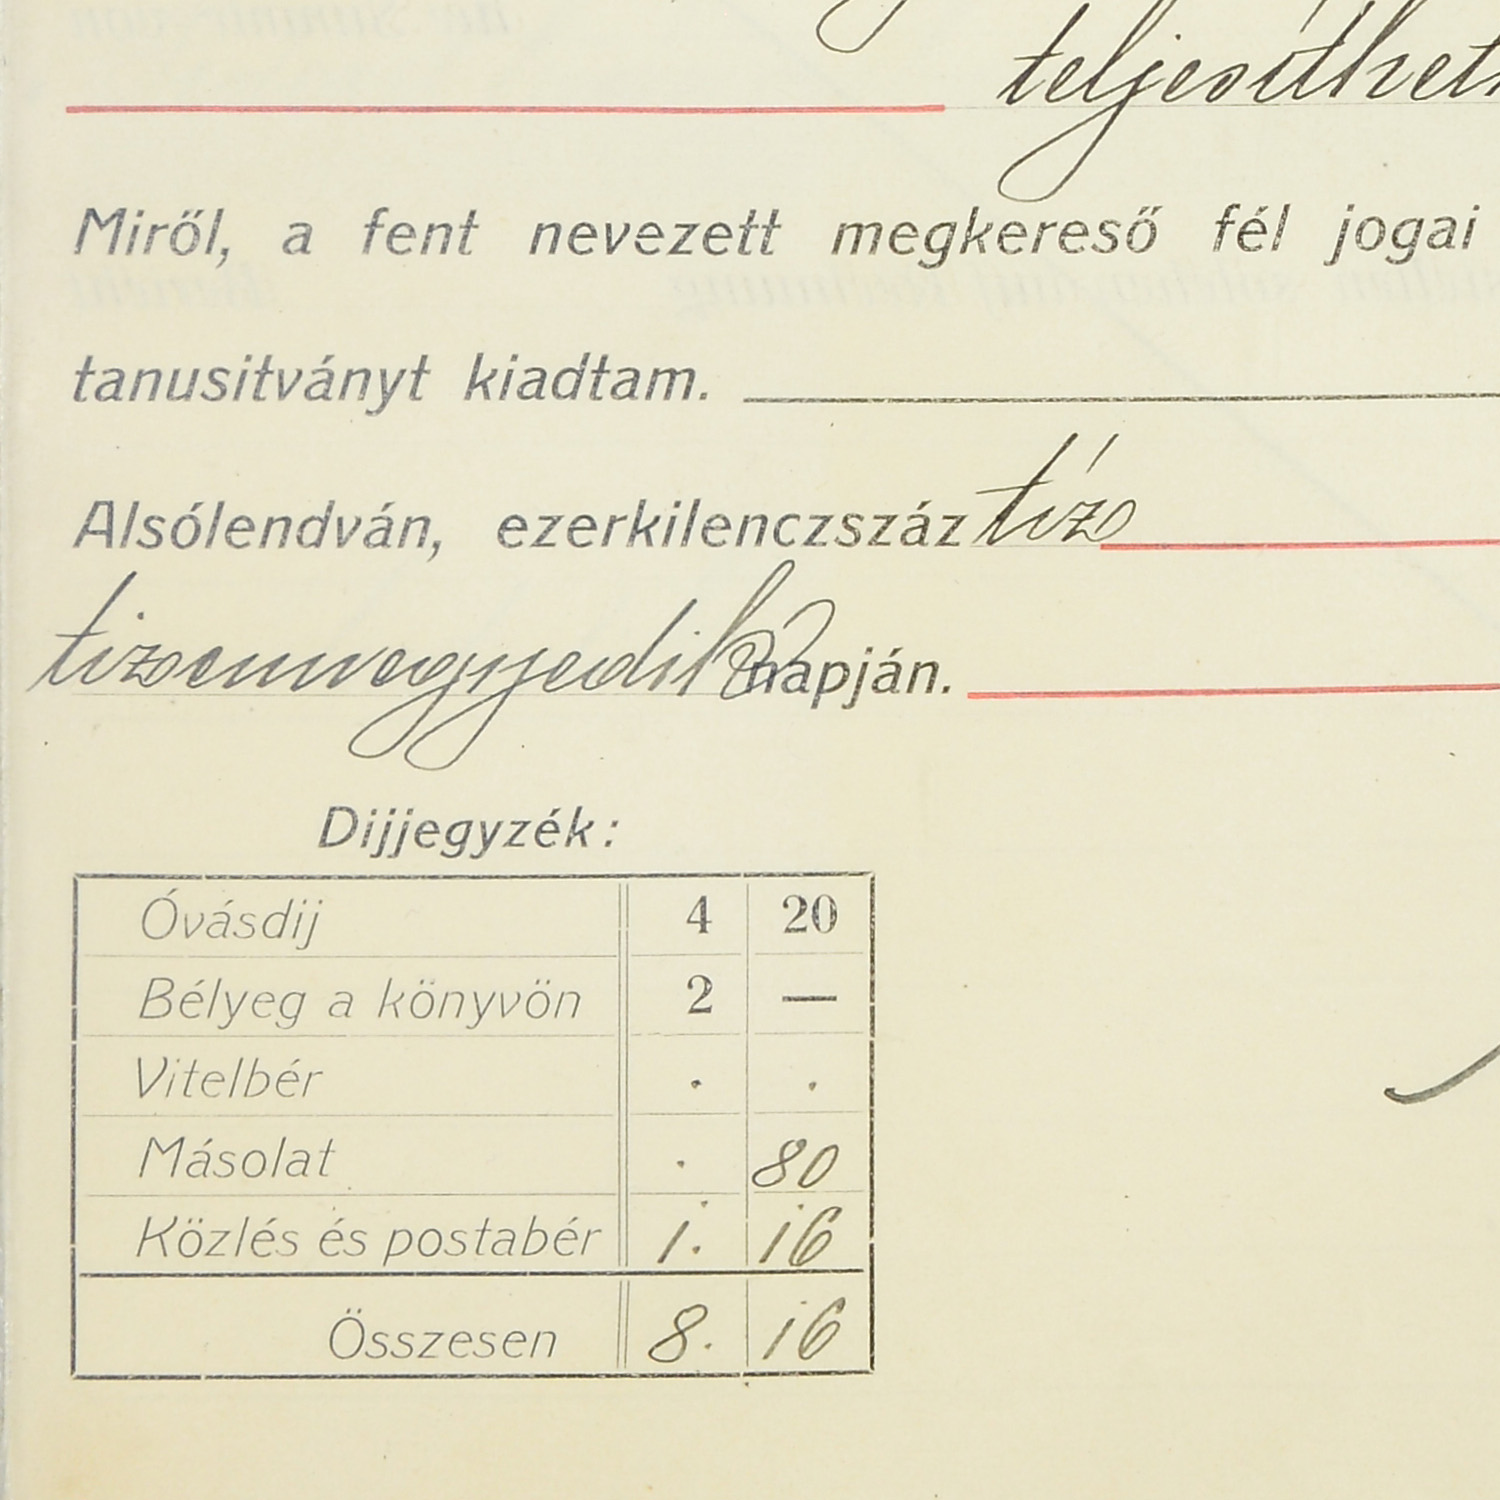 teljesíthet
Miről, a fent nevezett megkereső fél jogai
tanusitványt kiadtam.
Alsólendván, ezerkilenczszáz tíz
tizenegyedik napján.
Dijjegyzék:
Óvásdij 4 20
Bélyeg a könyvön 2 —
Vitelbér . .
Másolat . 80
Közlés és postabér 1. 16
Összesen 8. 16